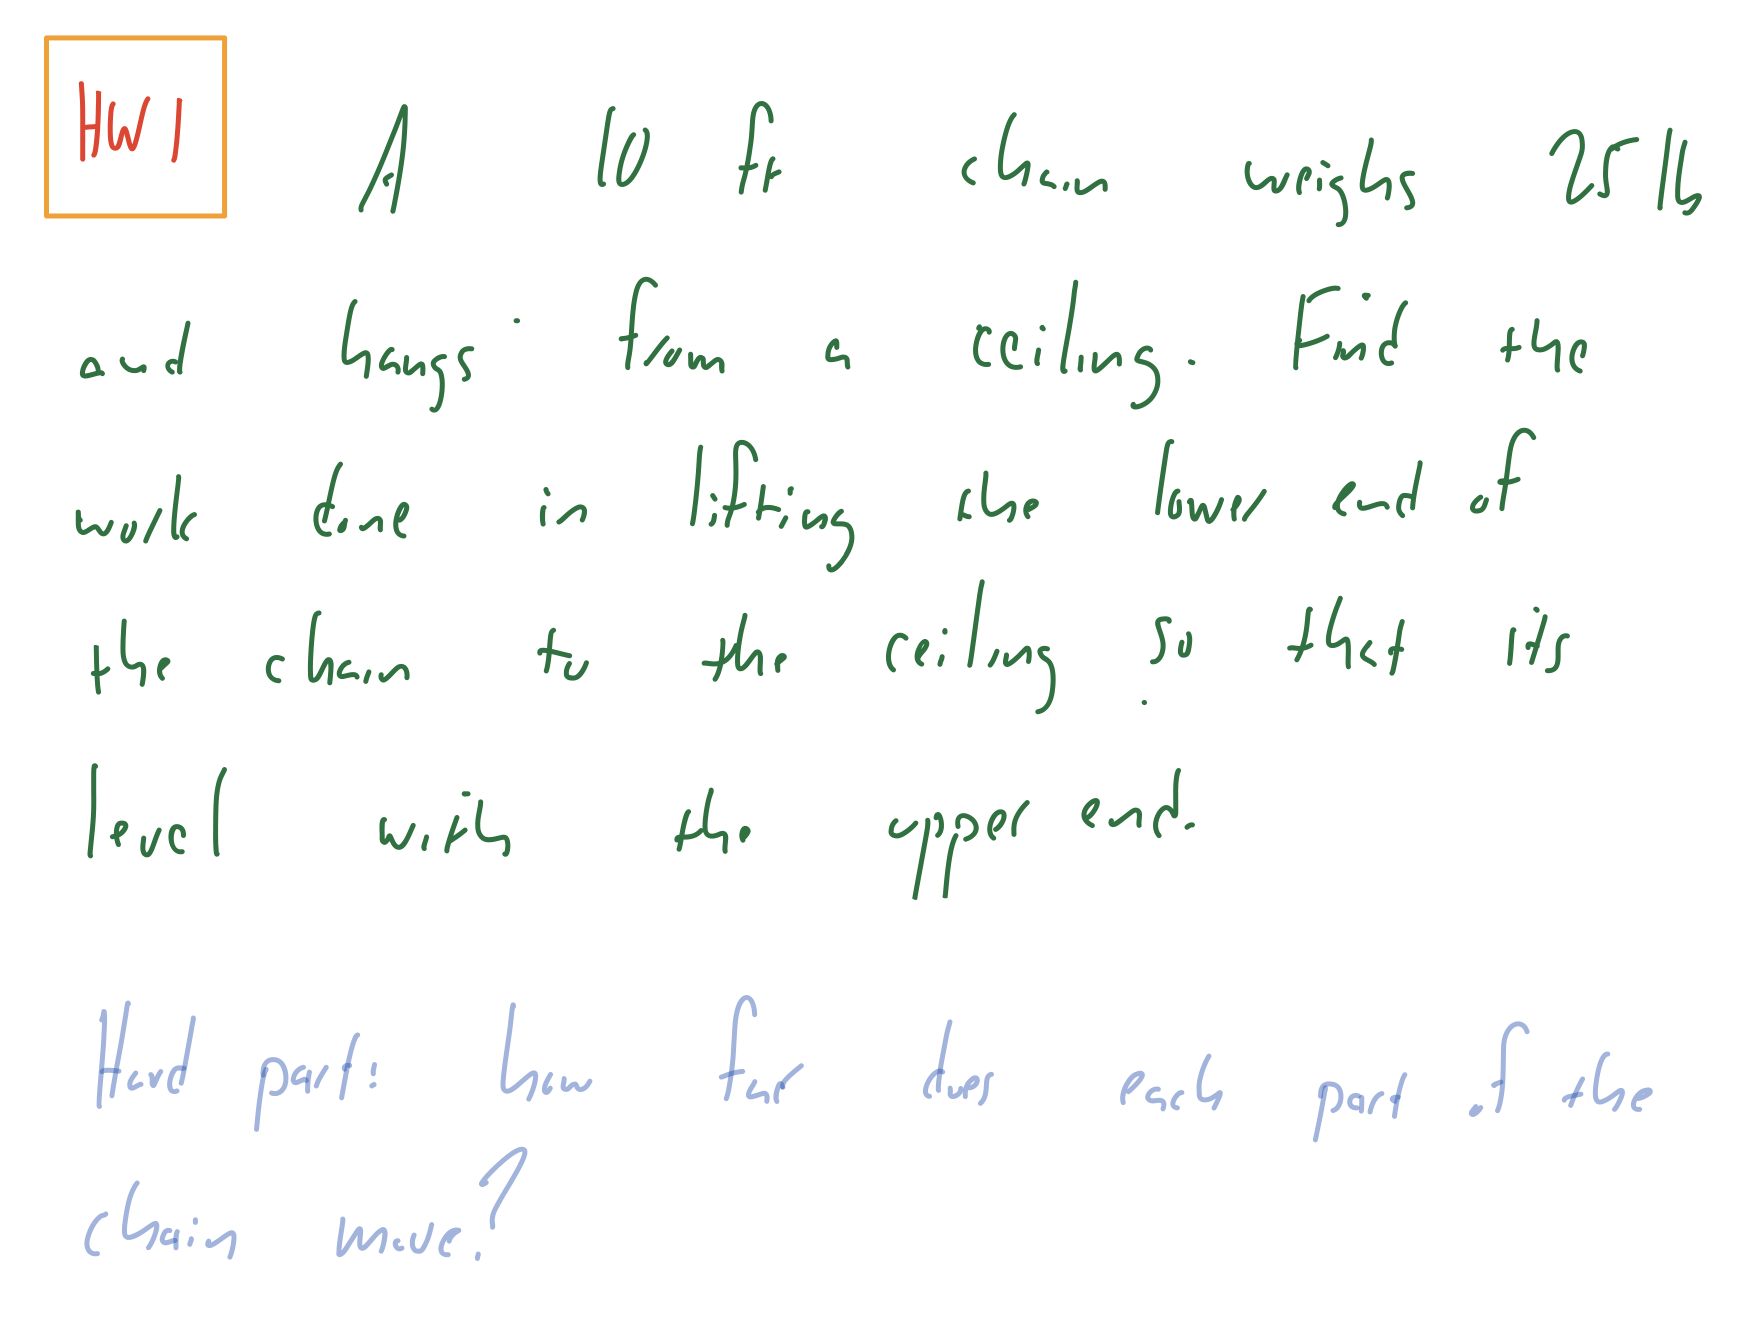 HW 1
A 10 ft chain weighs 25 lb
and hangs from a ceiling. Find the
work done in lifting the lower end of
the chain to the ceiling so that its
level with the upper end.
Hard part: how far does each part of the
chain move?